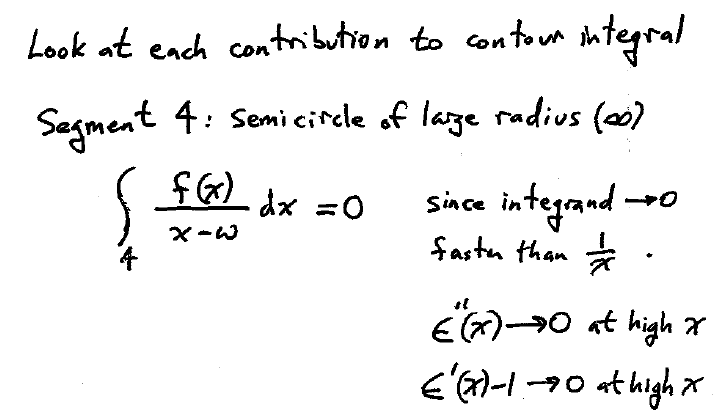 Look at each contribution to contour integral
Segment 4: Semicircle of large radius (∞)
∫₄ f(x)/(x-ω) dx = 0 since integrand → 0
faster than 1/x .
ε''(x) → 0 at high x
ε'(x)-1 → 0 at high x